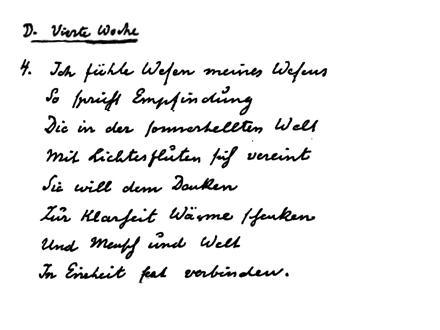 D. Vierte Woche
4. Ich fühle Wesen meines Wesens
So spricht Empfindung
Die in der sonnerhellten Welt
Mit Lichtesfluten sich vereint
Sie will dem Denken
Zur Klarheit Wärme schenken
Und Mensch und Welt
In Einheit fest verbinden.